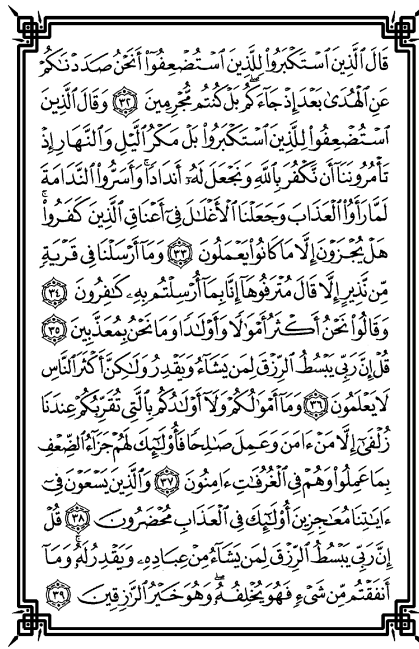 قَالَ ٱلَّذِينَ ٱسْتَكْبَرُوا۟ لِلَّذِينَ ٱسْتُضْعِفُوٓا۟ أَنَحْنُ صَدَدْنَٰكُمْ
عَنِ ٱلْهُدَىٰ بَعْدَ إِذْ جَآءَكُم ۖ بَلْ كُنتُم مُّجْرِمِينَ ٣٢ وَقَالَ ٱلَّذِينَ
ٱسْتُضْعِفُوا۟ لِلَّذِينَ ٱسْتَكْبَرُوا۟ بَلْ مَكْرُ ٱلَّيْلِ وَٱلنَّهَارِ إِذْ
تَأْمُرُونَنَآ أَن نَّكْفُرَ بِٱللَّهِ وَنَجْعَلَ لَهُۥٓ أَندَادًا ۚ وَأَسَرُّوا۟ ٱلنَّدَامَةَ
لَمَّا رَأَوُا۟ ٱلْعَذَابَ وَجَعَلْنَا ٱلْأَغْلَٰلَ فِىٓ أَعْنَاقِ ٱلَّذِينَ كَفَرُوا۟ ۚ
هَلْ يُجْزَوْنَ إِلَّا مَا كَانُوا۟ يَعْمَلُونَ ٣٣ وَمَآ أَرْسَلْنَا فِى قَرْيَةٍ
مِّن نَّذِيرٍ إِلَّا قَالَ مُتْرَفُوهَآ إِنَّا بِمَآ أُرْسِلْتُم بِهِۦ كَٰفِرُونَ ٣٤
وَقَالُوا۟ نَحْنُ أَكْثَرُ أَمْوَٰلًا وَأَوْلَٰدًا وَمَا نَحْنُ بِمُعَذَّبِينَ ٣٥
قُلْ إِنَّ رَبِّى يَبْسُطُ ٱلرِّزْقَ لِمَن يَشَآءُ وَيَقْدِرُ وَلَٰكِنَّ أَكْثَرَ ٱلنَّاسِ
لَا يَعْلَمُونَ ٣٦ وَمَآ أَمْوَٰلُكُمْ وَلَآ أَوْلَٰدُكُم بِٱلَّتِى تُقَرِّبُكُمْ عِندَنَا
زُلْفَىٰٓ إِلَّا مَنْ ءَامَنَ وَعَمِلَ صَٰلِحًا فَأُو۟لَٰٓئِكَ لَهُمْ جَزَآءُ ٱلضِّعْفِ
بِمَا عَمِلُوا۟ وَهُمْ فِى ٱلْغُرُفَٰتِ ءَامِنُونَ ٣٧ وَٱلَّذِينَ يَسْعَوْنَ فِىٓ
ءَايَٰتِنَا مُعَٰجِزِينَ أُو۟لَٰٓئِكَ فِى ٱلْعَذَابِ مُحْضَرُونَ ٣٨ قُلْ
إِنَّ رَبِّى يَبْسُطُ ٱلرِّزْقَ لِمَن يَشَآءُ مِنْ عِبَادِهِۦ وَيَقْدِرُ لَهُۥ ۚ وَمَآ
أَنفَقْتُم مِّن شَىْءٍ فَهُوَ يُخْلِفُهُۥ ۖ وَهُوَ خَيْرُ ٱلرَّٰزِقِينَ ٣٩